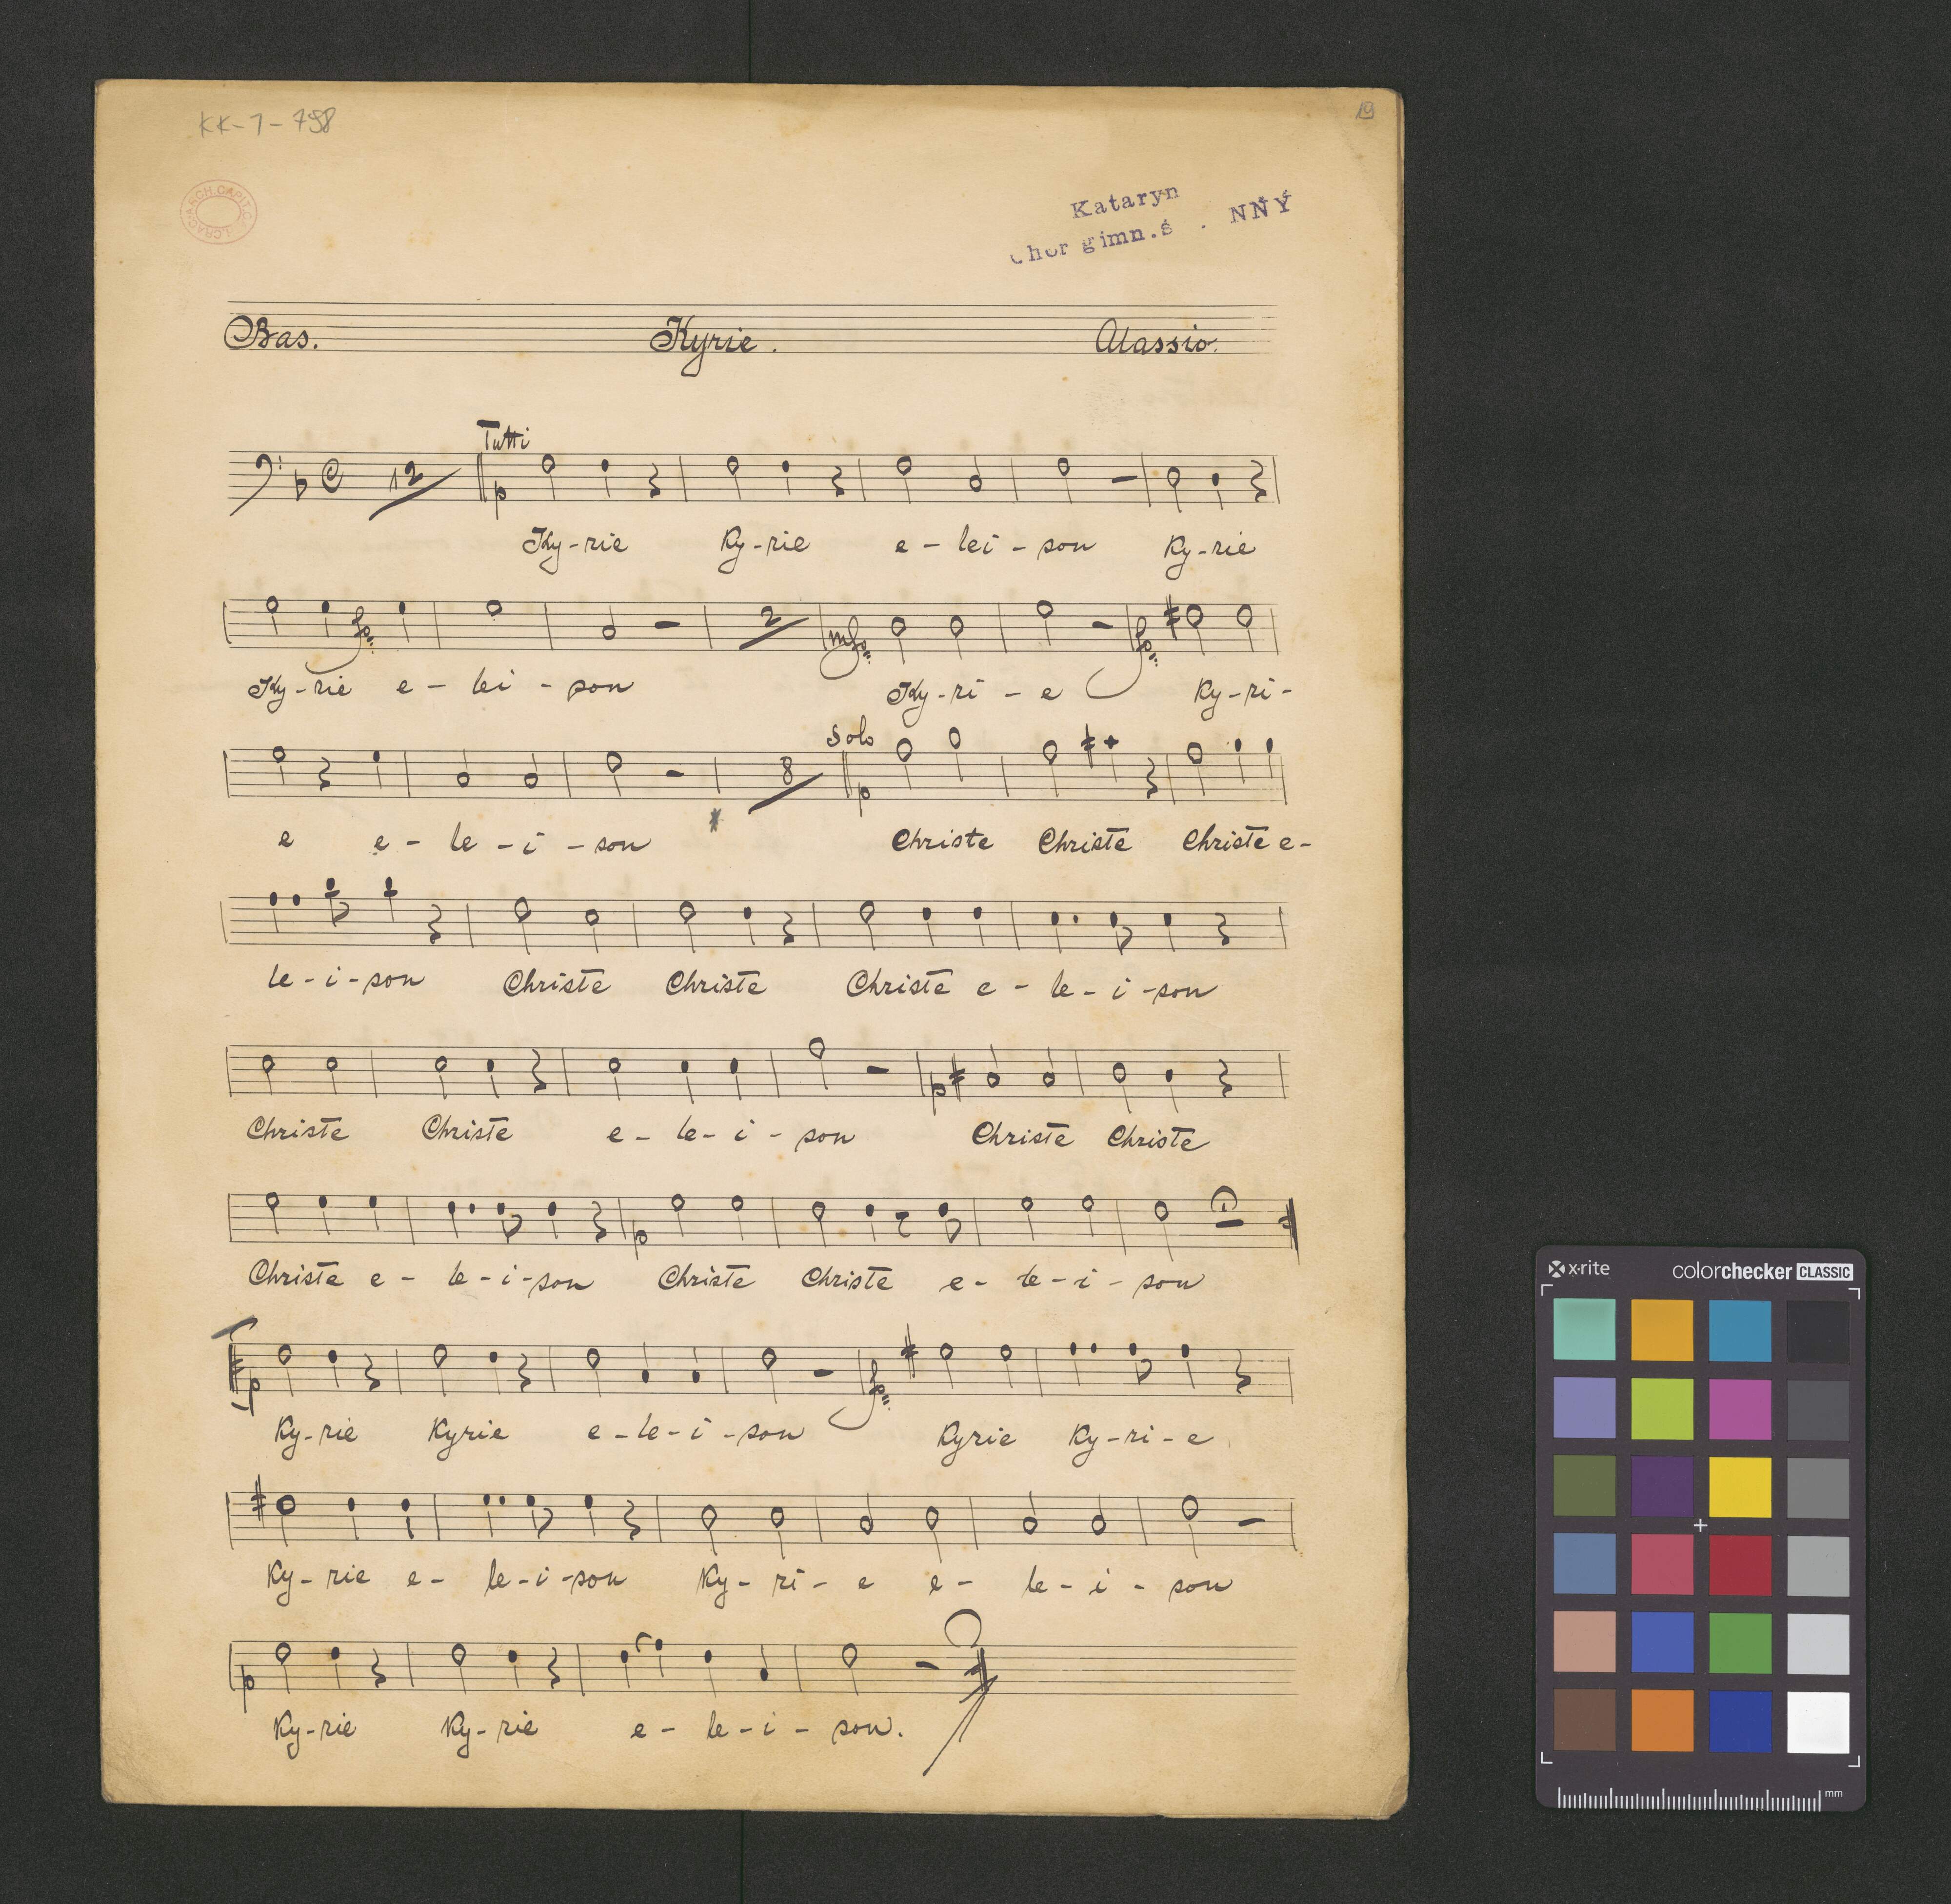 KK-1-758
19
ARCH.CAPIT.
Kataryn
Chor gimn.ś . NNÝ
Bas. Kyrie. Alassio.
12 Tutti
Ky-rie Ky-rie e-lei-son Ky-rie
2 mfo fo
Ky-rie e-lei-son Ky-ri-e Ky-ri-
8 Solo
e e-le-i-son Christe Christe Christe e-
le-i-son Christe Christe Christe e-le-i-son
Christe Christe e-le-i-son Christe Christe
p
Christe e-le-i-son Christe Christe e-le-i-son
p
Ky-rie Kyrie e-le-i-son Kyrie Ky-ri-e
Ky-rie e-le-i-son Ky-ri-e e-le-i-son
p
Ky-rie Ky-rie e-le-i-son.
x·rite colorchecker CLASSIC
mm